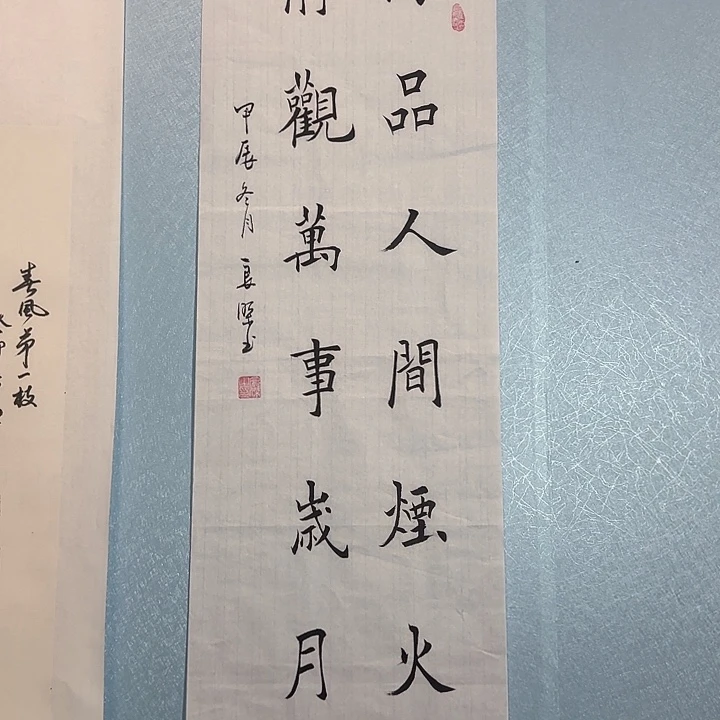 品人間煙火
觀萬事歲月
甲辰冬月
春風第一枝